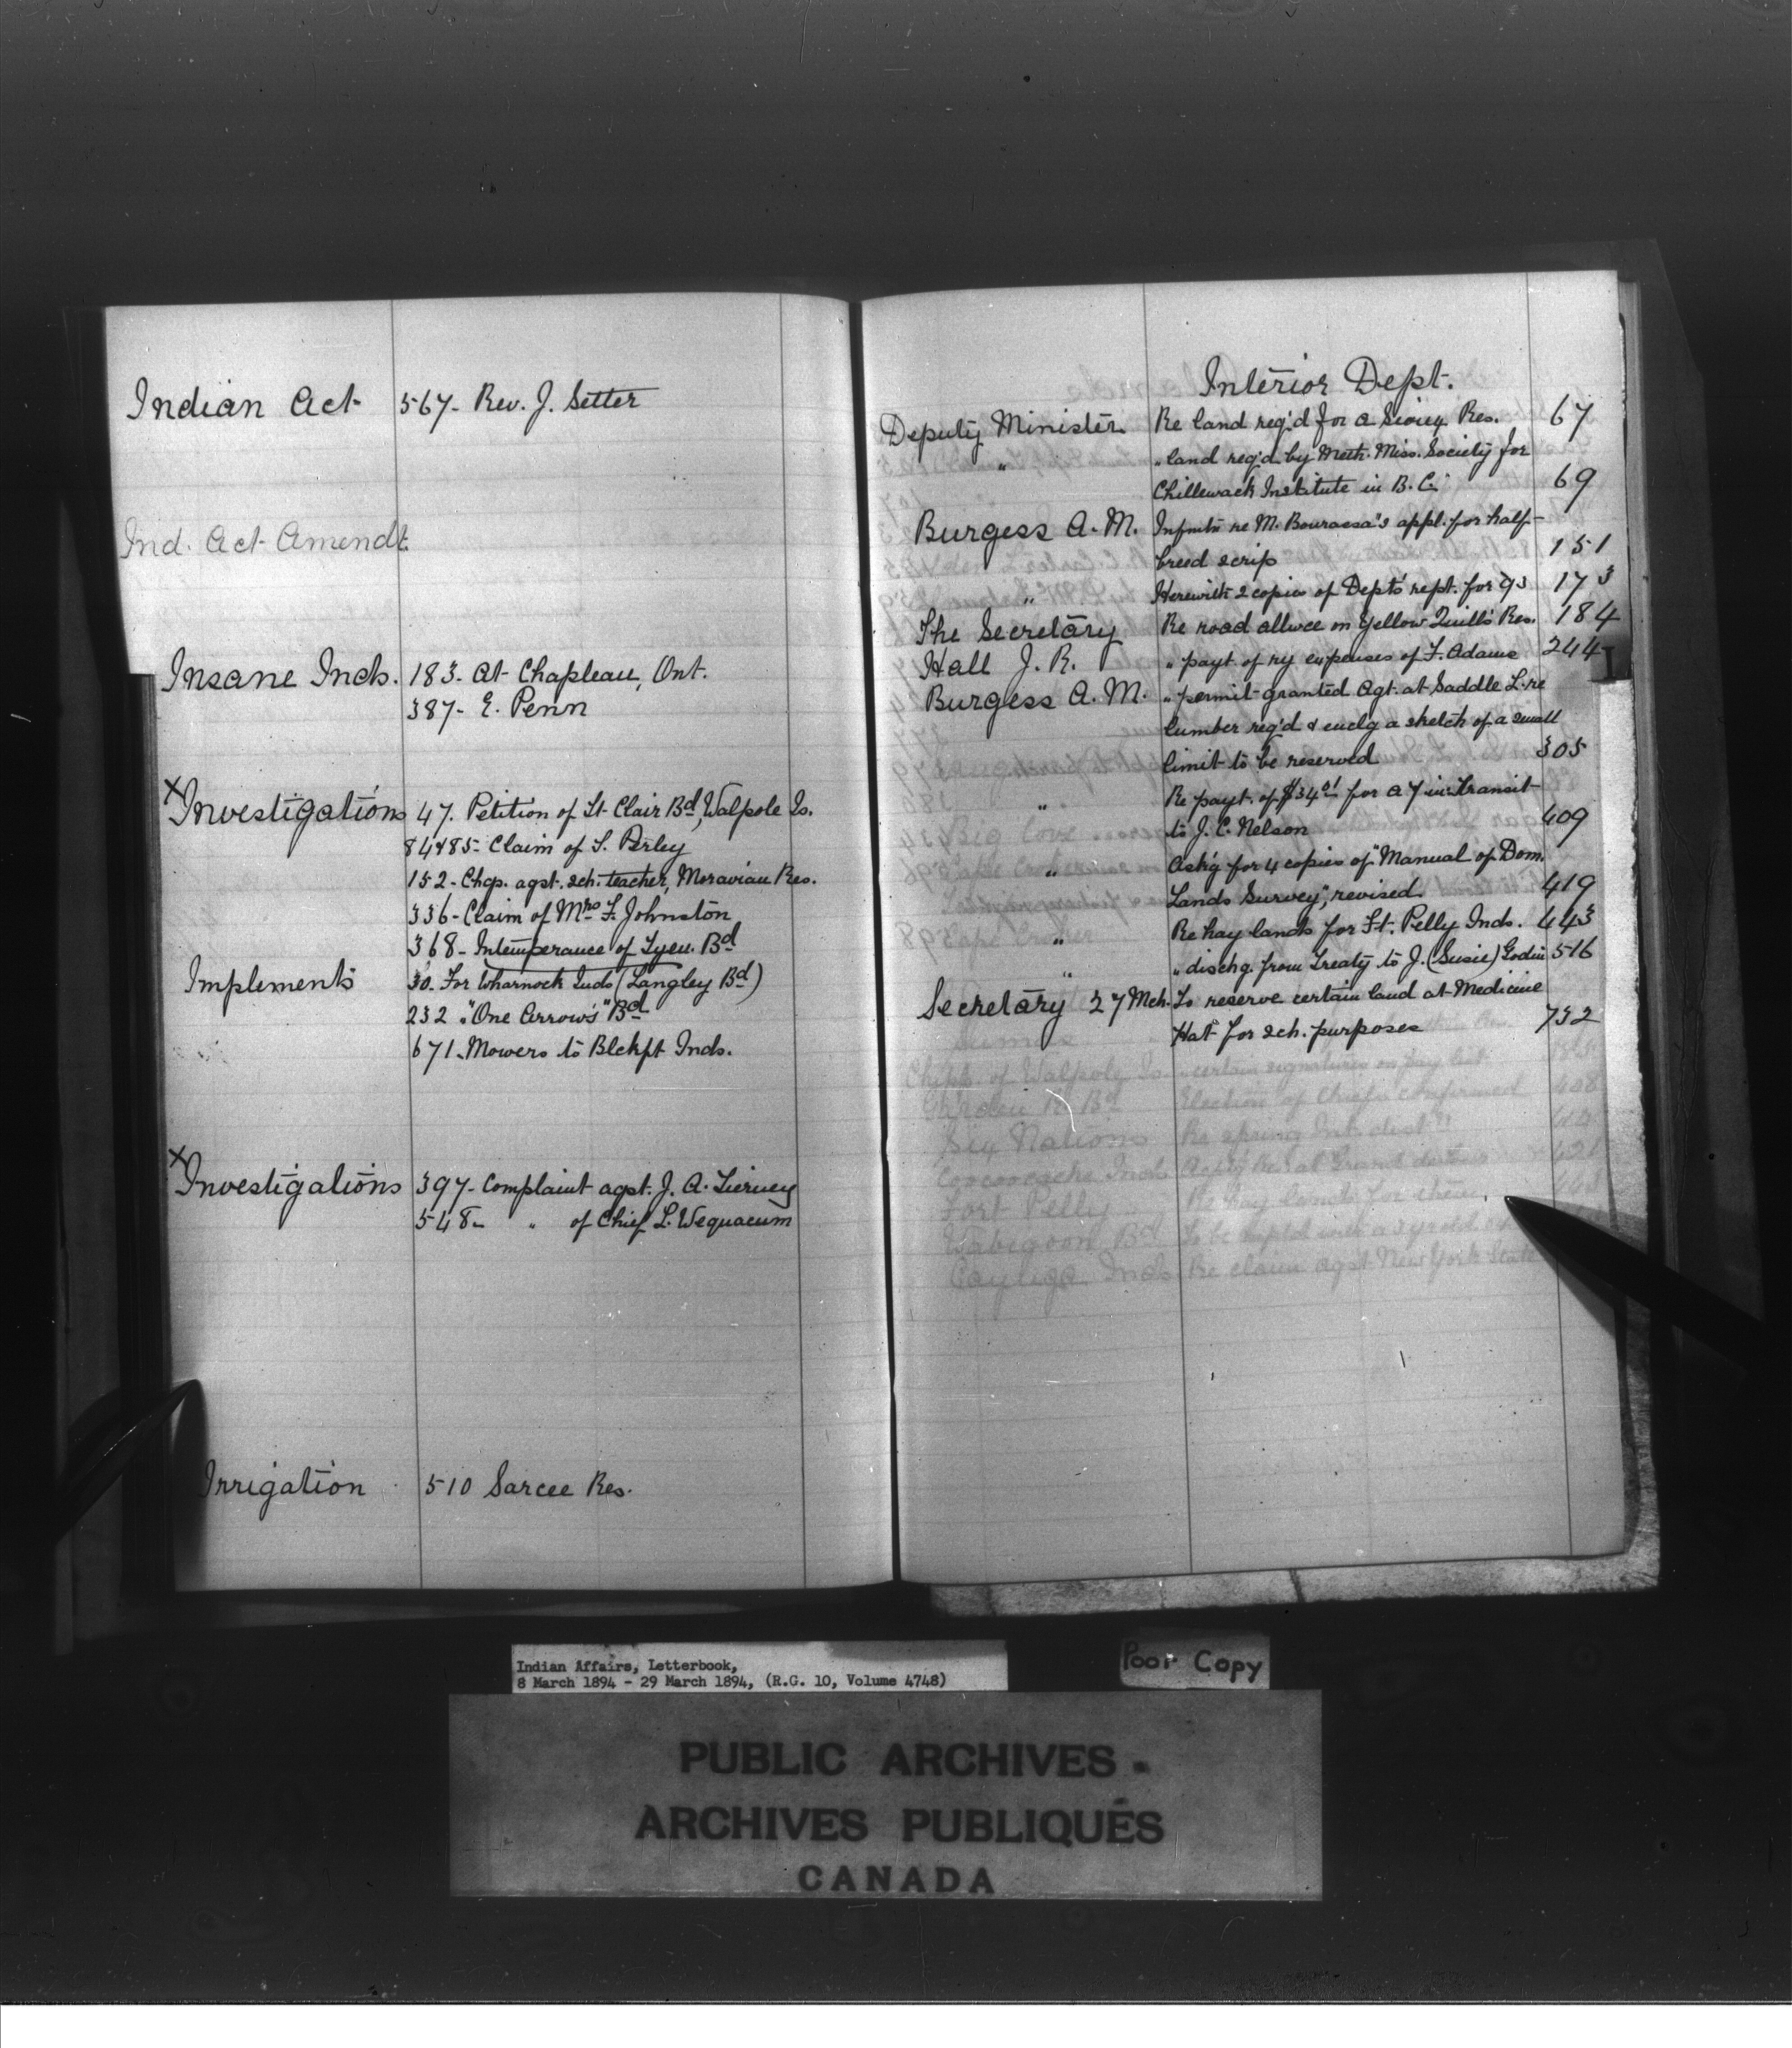 Indian Act 567- Rev. J. Settee
Ind. Act Amendt.
Insane Inds. 183- At Chapleau, Ont.
387- E. Penn
x Investigations 47. Petition of St Clair Bd, Walpole Is.
84&85- Claim of S. Perley
152- Chgs. agst. sch. teacher, Moravian Res.
336- Claim of Mrs F. Johnston
368- Intemperance of Lyeu. Bd
Implements 30. For Wharnock Inds (Langley Bd)
232 " "One Arrow's" Bd
671. Mowers to Blckft Inds.
x Investigations 397- Complaint agst. J. A. Tierney
548- " of Chief L. Wequacum
Irrigation 510 Sarcee Res.
Interior Dept.
Deputy Minister Re land req'd for a Sioux Res. 67
" " land req'd by Meth. Miss. Society for
Chillewack Institute in B.C. 69
Burgess A. M. Infmtn re M. Bourassa's appl. for half-
breed scrip 151
" Herewith 2 copies of Dept's rept. for 93 173
The Secretary Re road allwce on Yellow Quill's Res. 184
Hall J. R. " payt. of ry expenses of F. Adams 244
Burgess A. M. " permit granted Agt. at Saddle L. re
lumber req'd & enclg a sketch of a small
limit to be reserved 305
" Re payt. of $34.01 for a 7 in. Transit
to J. C. Nelson 409
" Ask'g for 4 copies of "Manual of Dom.
Lands Survey", revised 419
" Re hay lands for Ft. Pelly Inds. 443
" " dischg. from Treaty to J. (Susie) Godin 516
Secretary 27 Mch. To reserve certain land at Medicine
Hat for sch. purposes 732
Chipp. of Walpole Is. certain signatures on pay list
Garden R. Bd Election of Chiefs confirmed 408
Six Nations Re spring Int. dist'n
Inds
Fort Pelly Re hay lands for them
Wabigoon Bd To be
Cayuga Inds Re claim agst New York State
I
Indian Affairs, Letterbook,
8 March 1894 - 29 March 1894, (R.G. 10, Volume 4748)
Poor Copy
PUBLIC ARCHIVES
ARCHIVES PUBLIQUES
CANADA